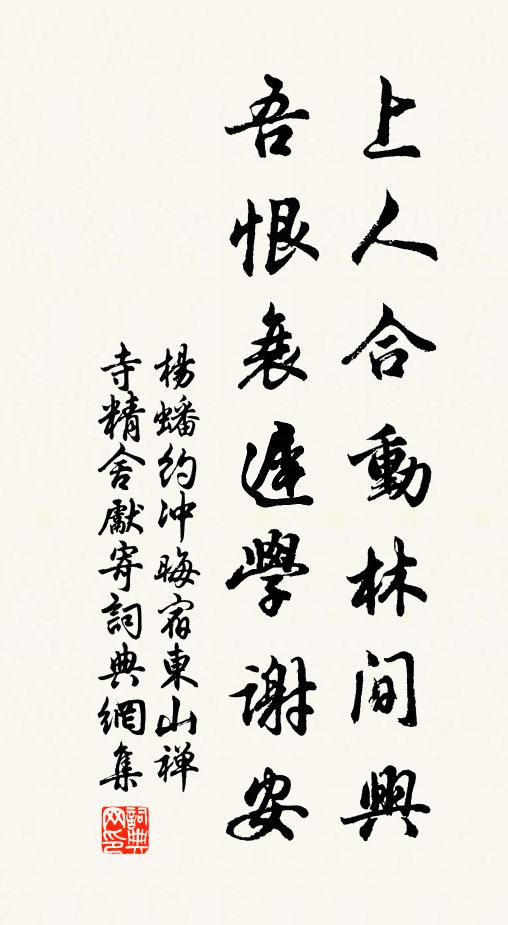 上人合動林間興
吾恨衰遲學謝安
楊蟠約冲晦宿東山禅
寺精舍獻寄詞典網集
詞典网印